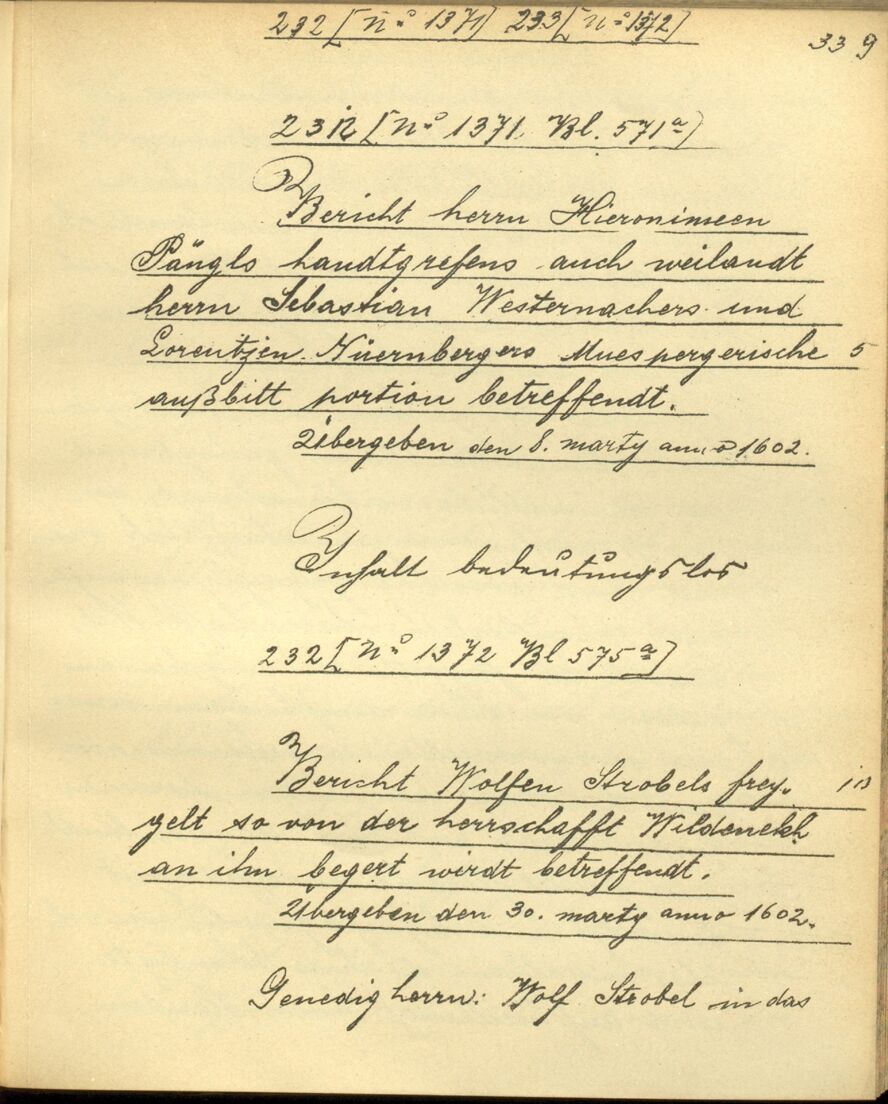 232 [nº 1371] 233 [nº 1372]
339
232 [Nº 1371. Bl. 571ª]
Bericht herrn Hieronimeen
Pängls handtgrefens auch weilandt
herrn Sebastian Westernachers und
Lorentzen Nüernbergers Muespergerische 5
außbitt portion betreffendt.
Übergeben den 8. marty anno 1602.
Inhalt bedeutungslos
232 [Nº 1372 Bl 575ª]
Bericht Wolfen Strobels frey- 10
gelt so von der herrschafft Wildenekh
an ihn begert wirdt betreffendt.
Übergeben den 30. marty anno 1602.
Genedig herrn: Wolf Strobel in das